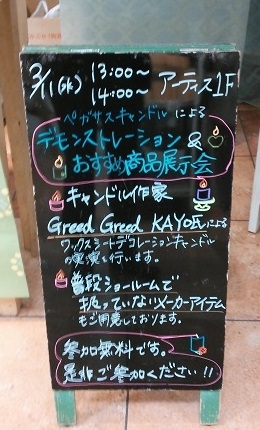 3/1(水) 13:00〜
14:00〜 アーティス1F
ペガサスキャンドルによる
デモンストレーション&
おすすめ商品展示会
キャンドル作家
Greed Greed KAYO氏による
ワックスシートデコレーションキャンドル
の実演を行います。
普段ショールームで
扱っていないメーカーアイテム
もご用意しております。
参加無料です。
是非ご参加ください!!